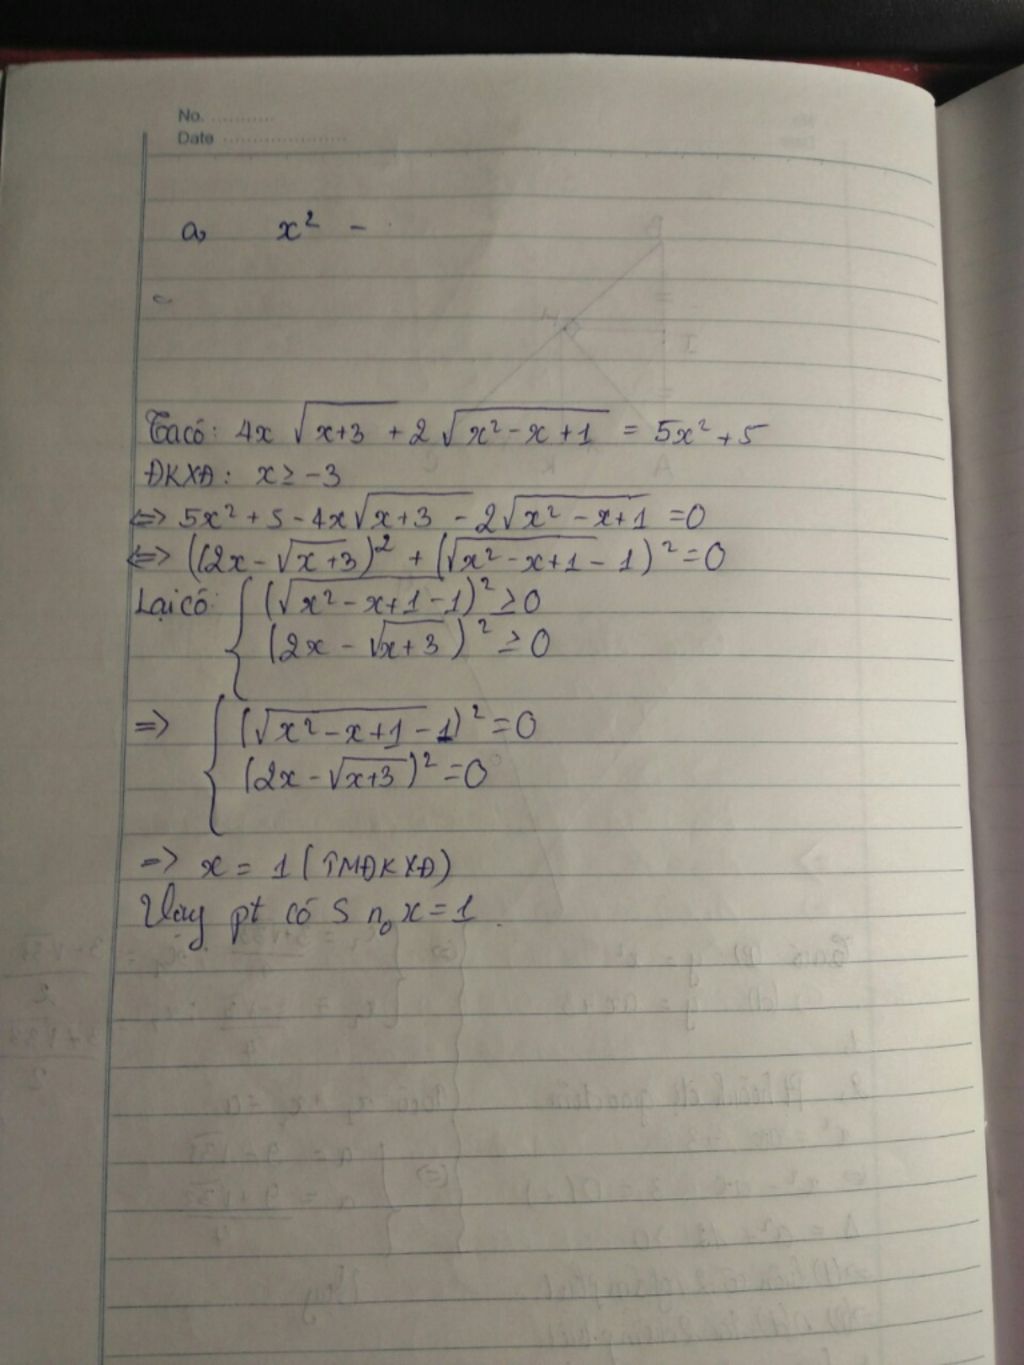 No. ............
Date ......................
a, x² -
Ta có: 4x √(x+3) + 2 √(x² - x + 1) = 5x² + 5
ĐKXĐ: x ≥ -3
<=> 5x² + 5 - 4x√(x+3) - 2√(x² - x + 1) = 0
<=> ((2x - √(x+3))² + (√(x² - x + 1) - 1)² = 0
Lại có: { (√(x² - x + 1) - 1)² ≥ 0
(2x - √(x+3))² ≥ 0
=> { (√(x² - x + 1) - 1)² = 0
(2x - √(x+3))² = 0
=> x = 1 (TMĐKXĐ)
Vậy pt có S no x = 1.